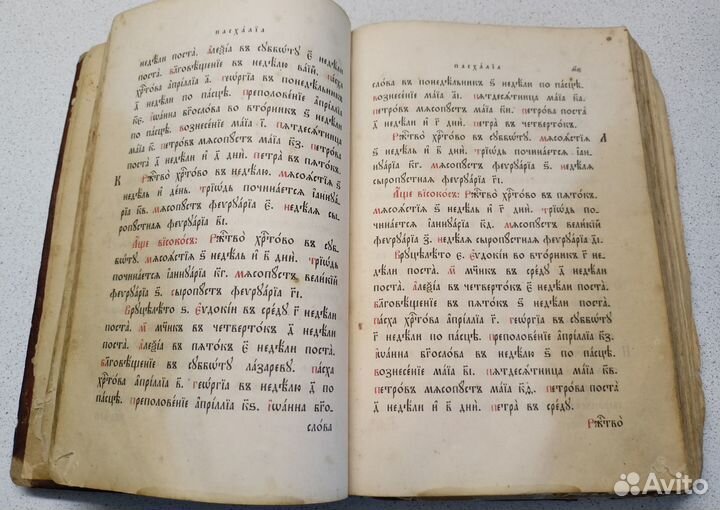 ПАСХА́ЛІА
недѣли поста̀. Але́ѯїа въ сꙋббѡ́тꙋ є҃ недѣли
поста̀. Бл҃говѣ́щенїе въ недѣ́лю ва́їй. Па́сха
хрⷭ҇то́ва а҆прі́ллїа а҃. Геѡ́ргїа въ понедѣ́льникъ
х҃ недѣ́ли по па́сцѣ. Преполове́нїе а҆прі́ллїа
к҃г. І҆ѡа́нна бг҃осло́ва во вто́рникъ ѕ҃ недѣ́ли
по па́сцѣ. Вознесе́нїе ма́їа і҃. Пѧтдесѧ́тница
ма́їа к҃. Петро́въ мѧсопꙋ́стъ ма́їа к҃з. Петро́ва
поста̀ д҃ недѣ́ли и҆ д҃ дни̑. Петра̀ въ пѧто́къ.
К Ржⷭ҇тво̀ хрⷭ҇то́во въ недѣ́лю. Мѧсоѧ́стїѧ ѕ҃
недѣ́ль и҆ де́нь. Трїѡ́дь починае́тсѧ і҆аннꙋа́-
рїа к҃в. Мѧсопꙋ́стъ феѵрꙋа́рїа є҃. Недѣ́лѧ сы-
ропꙋ́стнаѧ феѵрꙋа́рїа в҃і.
А҆́ще високо́съ: Ржⷭ҇тво̀ хрⷭ҇то́во въ сꙋб-
бѡ́тꙋ. Мѧсоѧ́стїѧ ѕ҃ недѣ́ль и҆ в҃ дни̑. Трїѡ́дь
починае́тсѧ і҆аннꙋа́рїа к҃г. Мѧсопꙋ́стъ вели́кїй
феѵрꙋа́рїа ѕ҃. Сыропꙋ́стъ феѵрꙋа́рїа г҃і.
Врꙋцѣлѣ́то ѕ҃. Е҆ѵдокі́и въ сре́дꙋ г҃ недѣ́ли
поста̀. М҃ мч҃нкъ въ четверто́къ д҃ недѣ́ли
поста̀. Але́ѯїа въ пѧто́къ є҃ недѣ́ли поста̀.
Бл҃говѣ́щенїе въ сꙋббѡ́тꙋ ла́зареву. Па́сха
хрⷭ҇то́ва а҆прі́ллїа в҃. Геѡ́ргїа въ недѣ́лю д҃ по
па́сцѣ. Преполове́нїе а҆прі́ллїа к҃ѕ. І҆ѡа́нна бг҃о-
сло́ва
ПАСХА́ЛІА
сло́ва въ понедѣ́льникъ ѕ҃ недѣ́ли по па́сцѣ.
Вознесе́нїе ма́їа а҃і. Пѧтдесѧ́тница ма́їа к҃а.
Петро́въ мѧсопꙋ́стъ ма́їа к҃и. Петро́ва поста̀
д҃ недѣ́ли и҆ г҃ дни̑. Петра̀ въ четверто́къ.
Ржⷭ҇тво̀ хрⷭ҇то́во въ сꙋббѡ́тꙋ. Мѧсоѧ́стїѧ Л
ѕ҃ недѣ́ль и҆ в҃ дни̑. Трїѡ́дь починае́тсѧ і҆ан-
нꙋа́рїа к҃г. Мѧсопꙋ́стъ феѵрꙋа́рїа ѕ҃. Недѣ́лѧ
сыропꙋ́стнаѧ феѵрꙋа́рїа г҃і.
А҆́ще високо́съ: Ржⷭ҇тво̀ хрⷭ҇то́во въ пѧто́къ.
Мѧсоѧ́стїѧ ѕ҃ недѣ́ль и҆ г҃ дни̑. Трїѡ́дь по-
чинае́тсѧ і҆аннꙋа́рїа к҃д. Мѧсопꙋ́стъ вели́кїй
феѵрꙋа́рїа з҃. Недѣ́лѧ сыропꙋ́стнаѧ феѵрꙋа́рїа д҃і.
Врꙋцѣлѣ́то є҃. Е҆ѵдокі́и во вто́рникъ г҃ не-
дѣ́ли поста̀. М҃ мч҃нкъ въ сре́дꙋ д҃ недѣ́ли
поста̀. Але́ѯїа въ четверто́къ є҃ недѣ́ли поста̀.
Бл҃говѣ́щенїе въ пѧто́къ ѕ҃ недѣ́ли поста̀.
Па́сха хрⷭ҇то́ва а҆прі́ллїа г҃. Геѡ́ргїа въ сꙋббѡ́тꙋ
г҃ недѣ́ли по па́сцѣ. Преполове́нїе а҆прі́ллїа к҃з.
І҆ѡа́нна бг҃осло́ва въ недѣ́лю ѕ҃ по па́сцѣ.
Вознесе́нїе ма́їа в҃і. Пѧтдесѧ́тница ма́їа к҃в.
Петро́въ мѧсопꙋ́стъ ма́їа к҃ѳ. Петро́ва поста̀
д҃ недѣ́ли и҆ в҃ дни̑. Петра̀ въ сре́дꙋ.
Ржⷭ҇тво̀
Avito